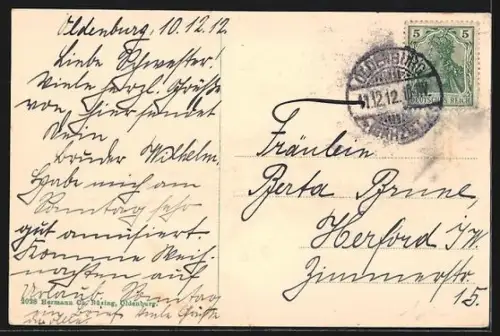 Oldenburg, 10.12.12.
Liebe Schwester!
Viele herzl. Grüße
von, hier sendet
Dein
Bruder Wilhelm.
Habe mich am
Sonntag sehr
gut amüsiert.
Komme Weih-
nachten auf
Urlaub. Sonntag
ein Brief viele Grüße
5
5
OLDENBURG
11.12.12.
REICH
Fräulein
Berta Brune,
Herford i/W.
Zimmerstr.
15.
Hermann Co. Büsing, Oldenburg.